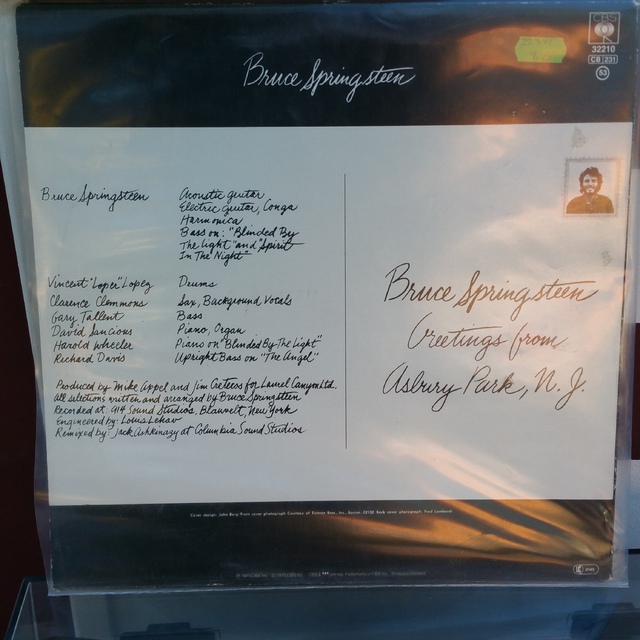 Bruce Springsteen
CBS
32210
CB 231
53
Bruce Springsteen Acoustic guitar
Electric guitar, Conga
Harmonica
Bass on: "Blinded By
The Light" and "Spirit
In The Night"
Vincent "Loper" Lopez Drums
Clarence Clemmons Sax, Background Vocals
Gary Tallent Bass
David Sancious Piano, Organ
Harold Wheeler Piano on "Blinded By The Light"
Richard Davis Upright Bass on "The Angel"
Produced by Mike Appel and Jim Cretecos for Laurel Canyon Ltd.
All selections written and arranged by Bruce Springsteen
Recorded at: 914 Sound Studios, Blauvelt, New York
Engineered by: Louis Lahav
Remixed by: Jack Ashkinazy at Columbia Sound Studios
Bruce Springsteen
Greetings from
Asbury Park, N.J.
Cover design: John Berg/Front cover photograph Courtesy of Tichnor Bros., Inc., Boston, 02130 Back cover photograph: Fred Lombardi